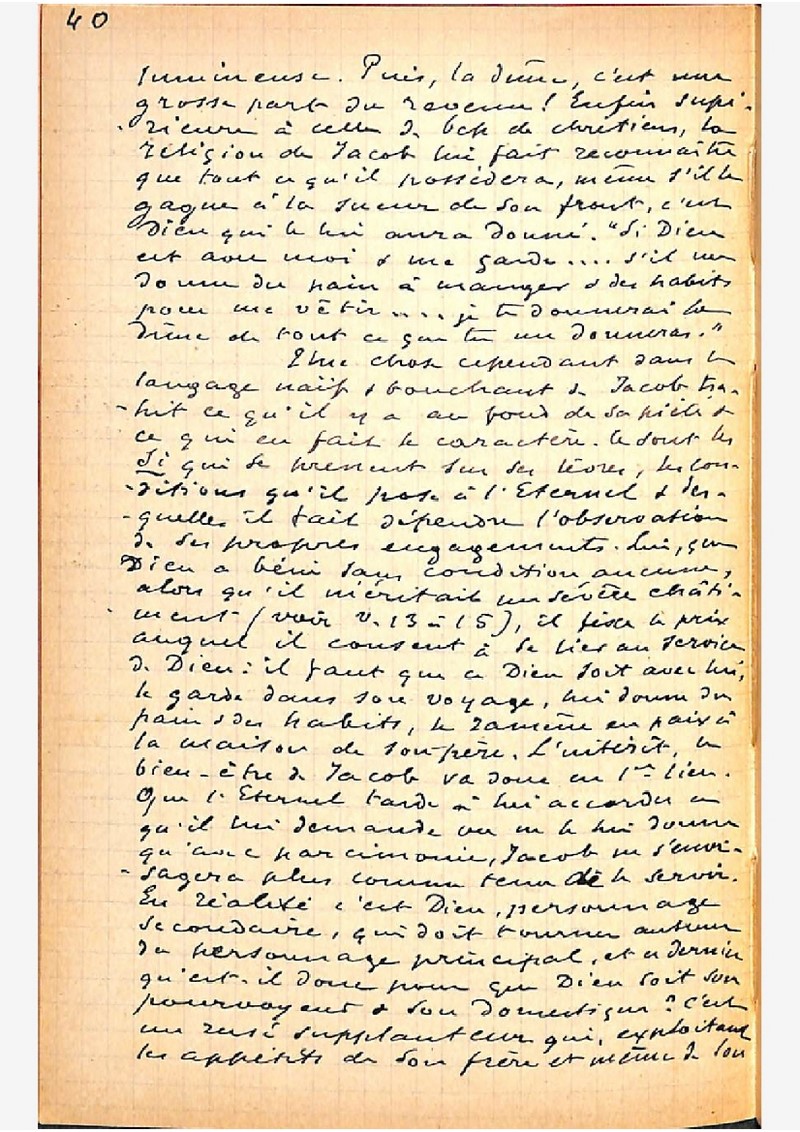 40
lumineuse. Puis, la dîme, c'est une
grosse part du revenu! Enfin supé-
-rieure à celle de bcp de chrétiens, la
religion de Jacob lui fait reconnaître
que tout ce qu'il possédera, même s'il le
gagne à la sueur de son front, c'est
Dieu qui le lui aura donné. "Si Dieu
est avec moi & me garde.... s'il me
donne du pain à manger & des habits
pour me vêtir.... je te donnerai la
dîme de tout ce que tu me donneras."
Une chose cependant dans le
langage naïf & touchant de Jacob tra-
-hit ce qu'il y a au fond de sa piété &
ce qui en fait le caractère. Ce sont les
Si qui se pressent sur ses lèvres, les con-
-ditions qu'il pose à l'Eternel & des-
-quelles il fait dépendre l'observation
de ses propres engagements. Lui, que
Dieu a béni sans condition aucune,
alors qu'il méritait un sévère châti-
ment (voir v. 13 à 15), il fixe le prix
auquel il consent à se lier au service
de Dieu: il faut que ce Dieu soit avec lui,
le garde dans son voyage, lui donne du
pain & des habits, le ramène en paix à
la maison de son père. L'intérêt, le
bien-être de Jacob va donc en 1er lieu.
Que l'Eternel tarde à lui accorder ce
qu'il lui demande ou ne le lui donne
qu'avec parcimonie, Jacob ne s'envi-
-sagera plus comme tenu de le servir.
En réalité c'est Dieu, personnage
secondaire, qui doit tourner autour
du personnage principal, et ce dernier
qu'est-il donc pour que Dieu soit son
pourvoyeur & son domestique? C'est
un rusé supplanteur qui, exploitant
les appétits de son frère et même de son